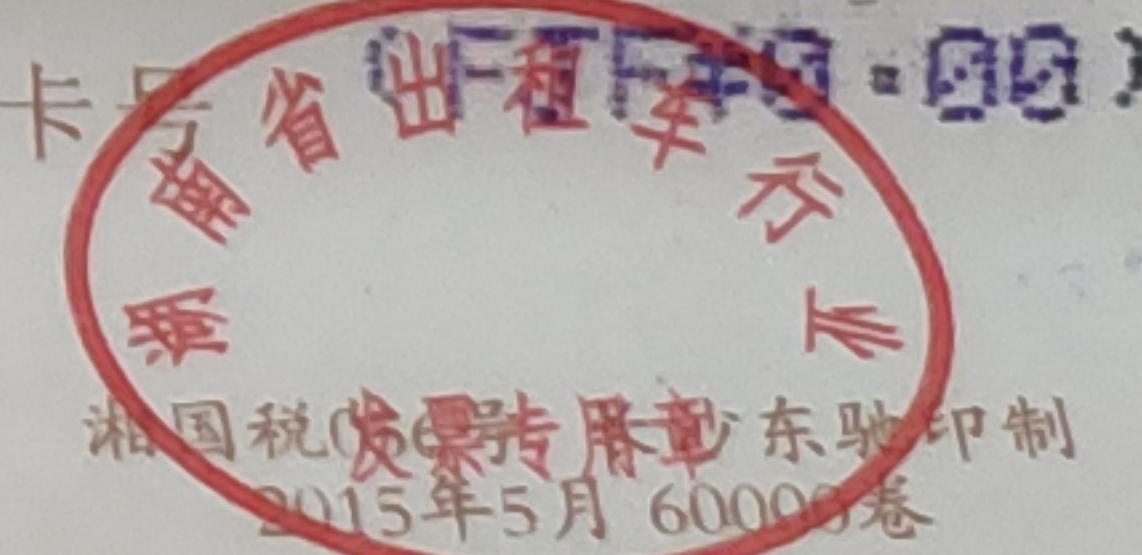 卡号
00
湖南省出租车行业
发票专用章
湘国税 号 东驰印制
2015年5月 60000卷